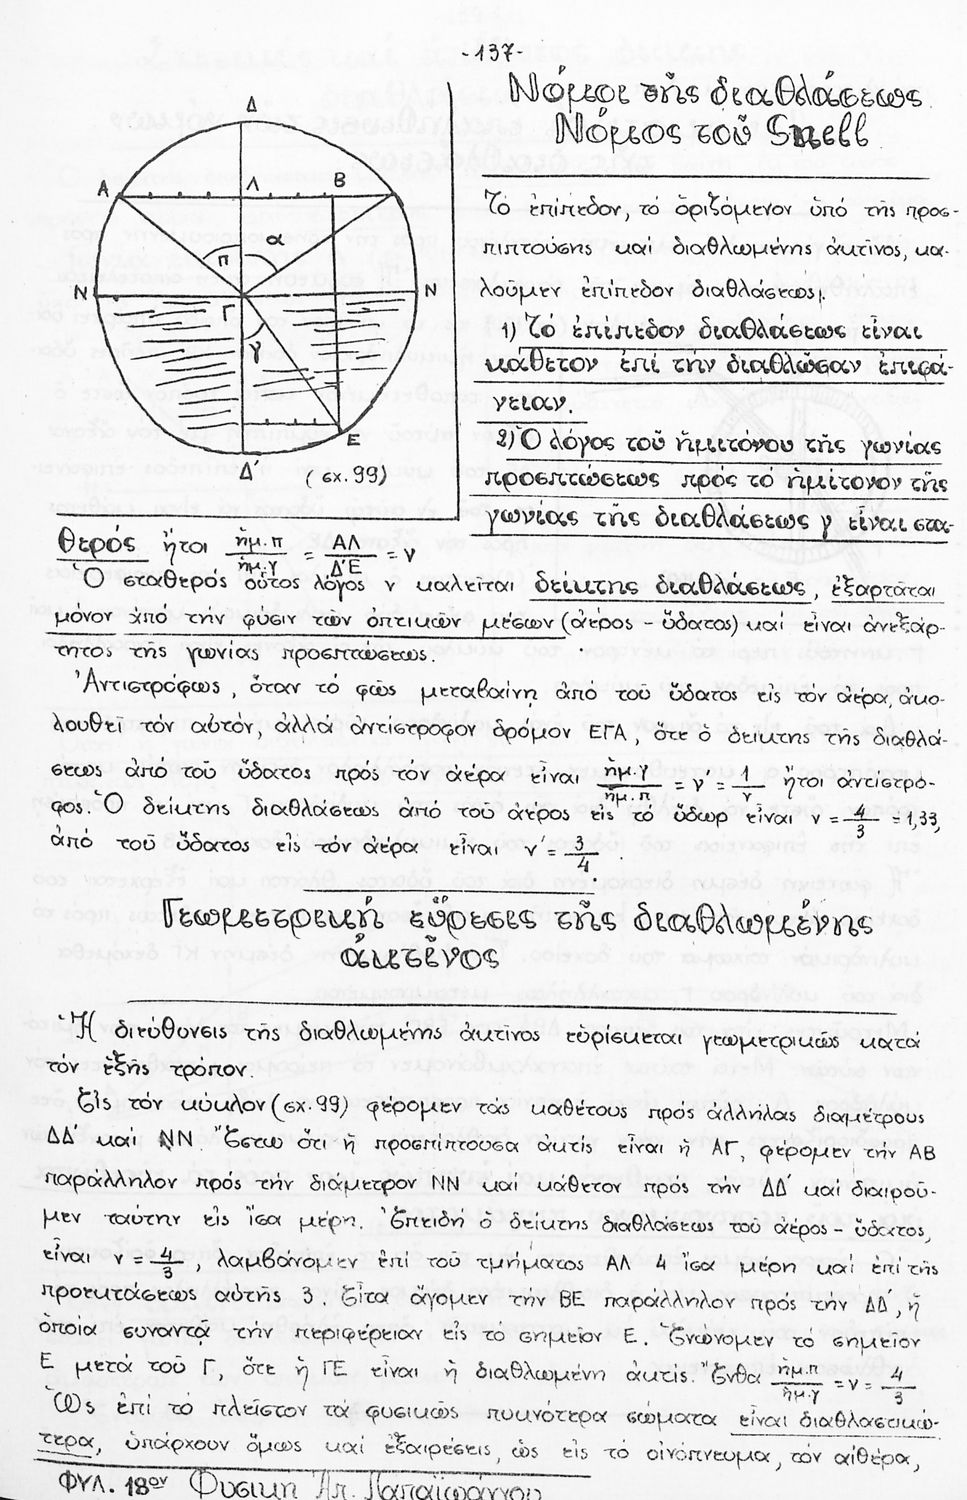 -137-
Νόμοι τῆς διαθλάσεως
Νόμος τοῦ Snell
Δ
Α
Λ
Β
α
π
Ν
Ν
Γ
γ
Ε
Δ΄
(σχ. 99)
Τὸ ἐπίπεδον, τὸ ὁριζόμενον ὑπό τῆς προσ-
πιπτούσης καί διαθλωμένης ἀκτῖνος, κα-
λοῦμεν ἐπίπεδον διαθλάσεως.
1) Τὸ ἐπίπεδον διαθλάσεως εἶναι
κάθετον ἐπί τήν διαθλῶσαν ἐπιφά-
νειαν.
2) Ὁ λόγος τοῦ ἡμιτόνου τῆς γωνίας
προσπτώσεως πρός τό ἡμίτονον τῆς
γωνίας τῆς διαθλάσεως γ εἶναι στα-
θερός ἤτοι ἡμ.π/ἡμ.γ = ΑΛ/Δ΄Ε = ν
Ὁ σταθερός οὗτος λόγος ν καλεῖται δείκτης διαθλάσεως, ἐξαρτᾶται
μόνον ἀπό τήν φύσιν τῶν ὀπτικῶν μέσων (ἀέρος - ὕδατος) καί εἶναι ἀνεξάρ-
τητος τῆς γωνίας προσπτώσεως.
Ἀντιστρόφως, ὅταν τό φῶς μεταβαίνη ἀπό τοῦ ὕδατος εἰς τόν ἀέρα, ἀκο-
λουθεῖ τόν αὐτόν, ἀλλά ἀντίστροφον δρόμον ΕΓΑ, ὅτε ὁ δείκτης τῆς διαθλά-
σεως ἀπό τοῦ ὕδατος πρός τόν ἀέρα εἶναι ἡμ.γ/ἡμ.π = ν΄ = 1/ν ἤτοι ἀντίστρο-
φος. Ὁ δείκτης διαθλάσεως ἀπό τοῦ ἀέρος εἰς τό ὕδωρ εἶναι ν = 4/3 = 1,33,
ἀπό τοῦ ὕδατος εἰς τόν ἀέρα εἶναι ν΄ = 3/4.
Γεωμετρική εὕρεσις τῆς διαθλωμένης
ἀκτῖνος
Ἡ διεύθυνσις τῆς διαθλωμένης ἀκτῖνος εὑρίσκεται γεωμετρικῶς κατά
τόν ἑξῆς τρόπον.
Εἰς τόν κύκλον (σχ. 99) φέρομεν τάς καθέτους πρός ἀλλήλας διαμέτρους
ΔΔ΄ καί ΝΝ. Ἔστω ὅτι ἡ προσπίπτουσα ἀκτίς εἶναι ἡ ΑΓ, φέρομεν τήν ΑΒ
παράλληλον πρός τήν διάμετρον ΝΝ καί κάθετον πρός τήν ΔΔ΄ καί διαιροῦ-
μεν ταύτην εἰς ἴσα μέρη. Ἐπειδή ὁ δείκτης διαθλάσεως τοῦ ἀέρος - ὕδατος,
εἶναι ν = 4/3, λαμβάνομεν ἐπί τοῦ τμήματος ΑΛ 4 ἴσα μέρη καί ἐπί τῆς
προεκτάσεως αὐτῆς 3. Εἶτα ἄγομεν τήν ΒΕ παράλληλον πρός τήν ΔΔ΄, ἡ
ὁποία συναντᾷ τήν περιφέρειαν εἰς τό σημεῖον Ε. Ἑνώνομεν τό σημεῖον
Ε μετά τοῦ Γ, ὅτε ἡ ΓΕ εἶναι ἡ διαθλωμένη ἀκτίς. Ἔνθα ἡμ.π/ἡμ.γ = ν = 4/3
Ὡς ἐπί τό πλεῖστον τά φυσικῶς πυκνότερα σώματα εἶναι διαθλαστικώ-
τερα, ὑπάρχουν ὅμως καί ἐξαιρέσεις, ὡς εἰς τό οἰνόπνευμα, τόν αἰθέρα,
ΦΥΛ. 18ον Φυσικη Ἀπ. Παπαϊωάννου